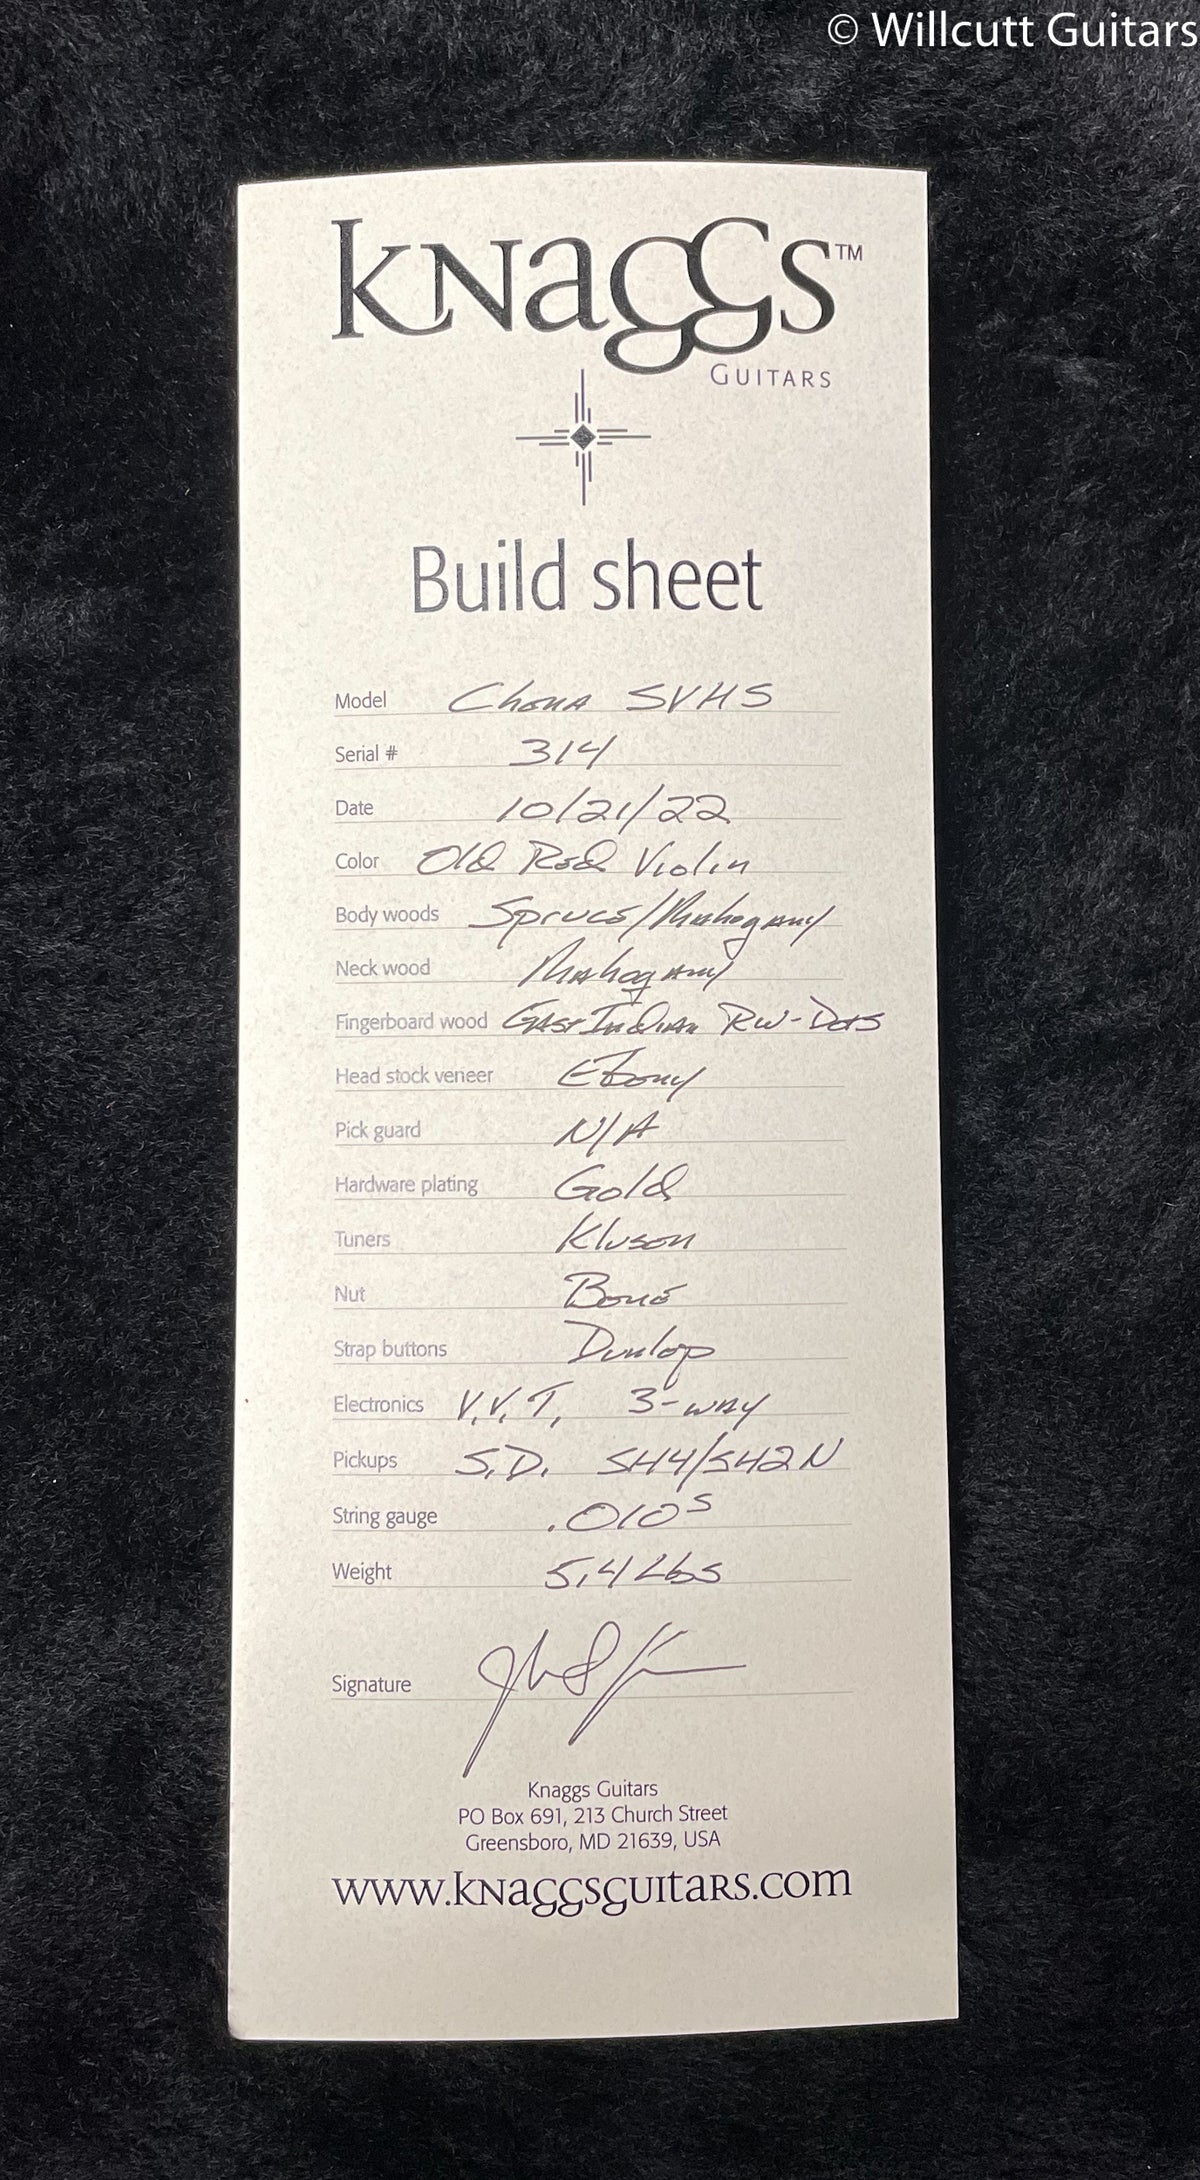 © Willcutt Guitars
Knaggs™
Guitars
Build sheet
Model Chena SVHS
Serial # 314
Date 10/21/22
Color Old Red Violin
Body woods Spruce/Mahogany
Neck wood Mahogany
Fingerboard wood East Indian RW-Dots
Head stock veneer Ebony
Pick guard N/A
Hardware plating Gold
Tuners Kluson
Nut Bone
Strap buttons Dunlop
Electronics V.V.T. 3-way
Pickups S.D. SH4/SH2N
String gauge .010s
Weight 5.4 Lbs
Signature
Knaggs Guitars
PO Box 691, 213 Church Street
Greensboro, MD 21639, USA
www.knaggsguitars.com